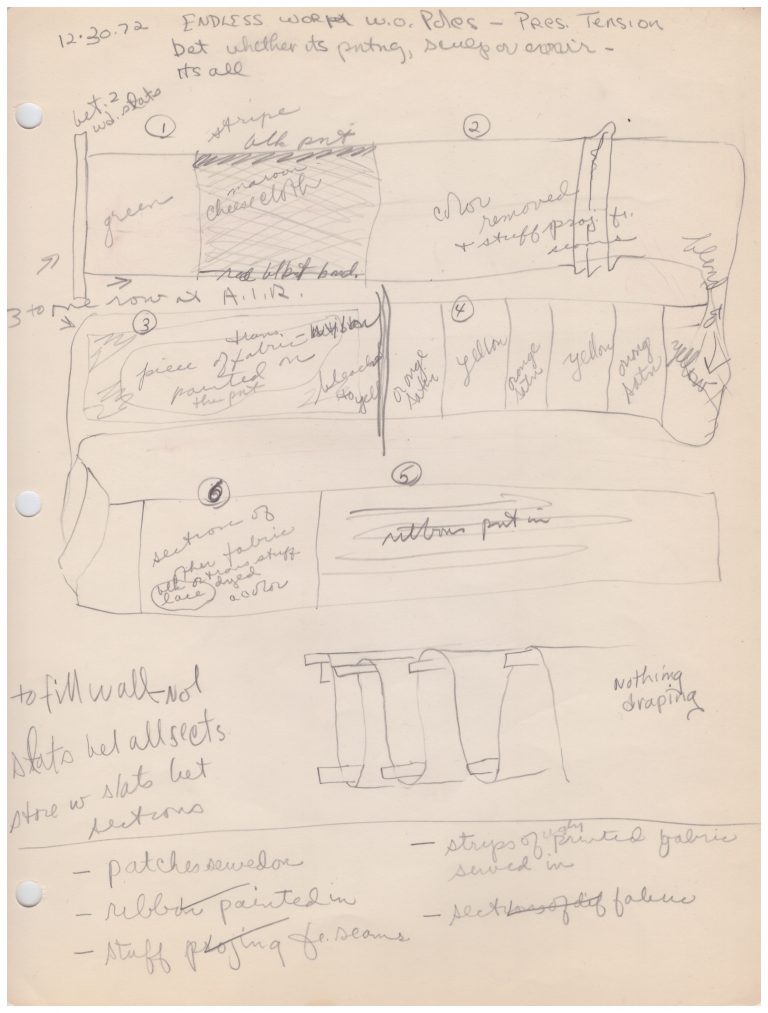 12.30.72
ENDLESS WORK W.O. Poles – Pres. Tension
bet whether its pntng, sculp or envir –
its all
bet. 2
wd. slats
1
stripe
blk pnt
green
maroon
cheesecloth
2
color
removed
+ stuff proj. fr.
seams
3 to one row at A.I.R.
3
trans.
piece of fabric
painted on
the pnt
bleached
to yel
4
orange
satin
yellow
orange
satin
yellow
orang
satin
yellow
6
section of
other fabric
blk or trans. stuff
lace dyed
a color
5
ribbons put in
to fill wall – not
slats bet all sects
store w slats bet
sections
Nothing
draping
– patches sewed on
– ribbon painted in
– stuff projing fr. seams
– strips of printed fabric
sewed in
– sections of dif fabric